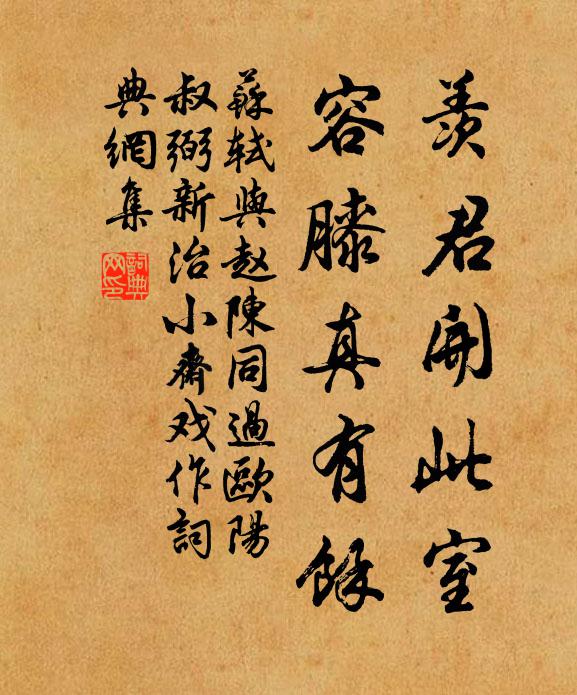 羨君開此室
容膝真有餘
蘇軾與赵陳同過歐陽
叔弼新治小齋戏作詞
典網集
詞典网印